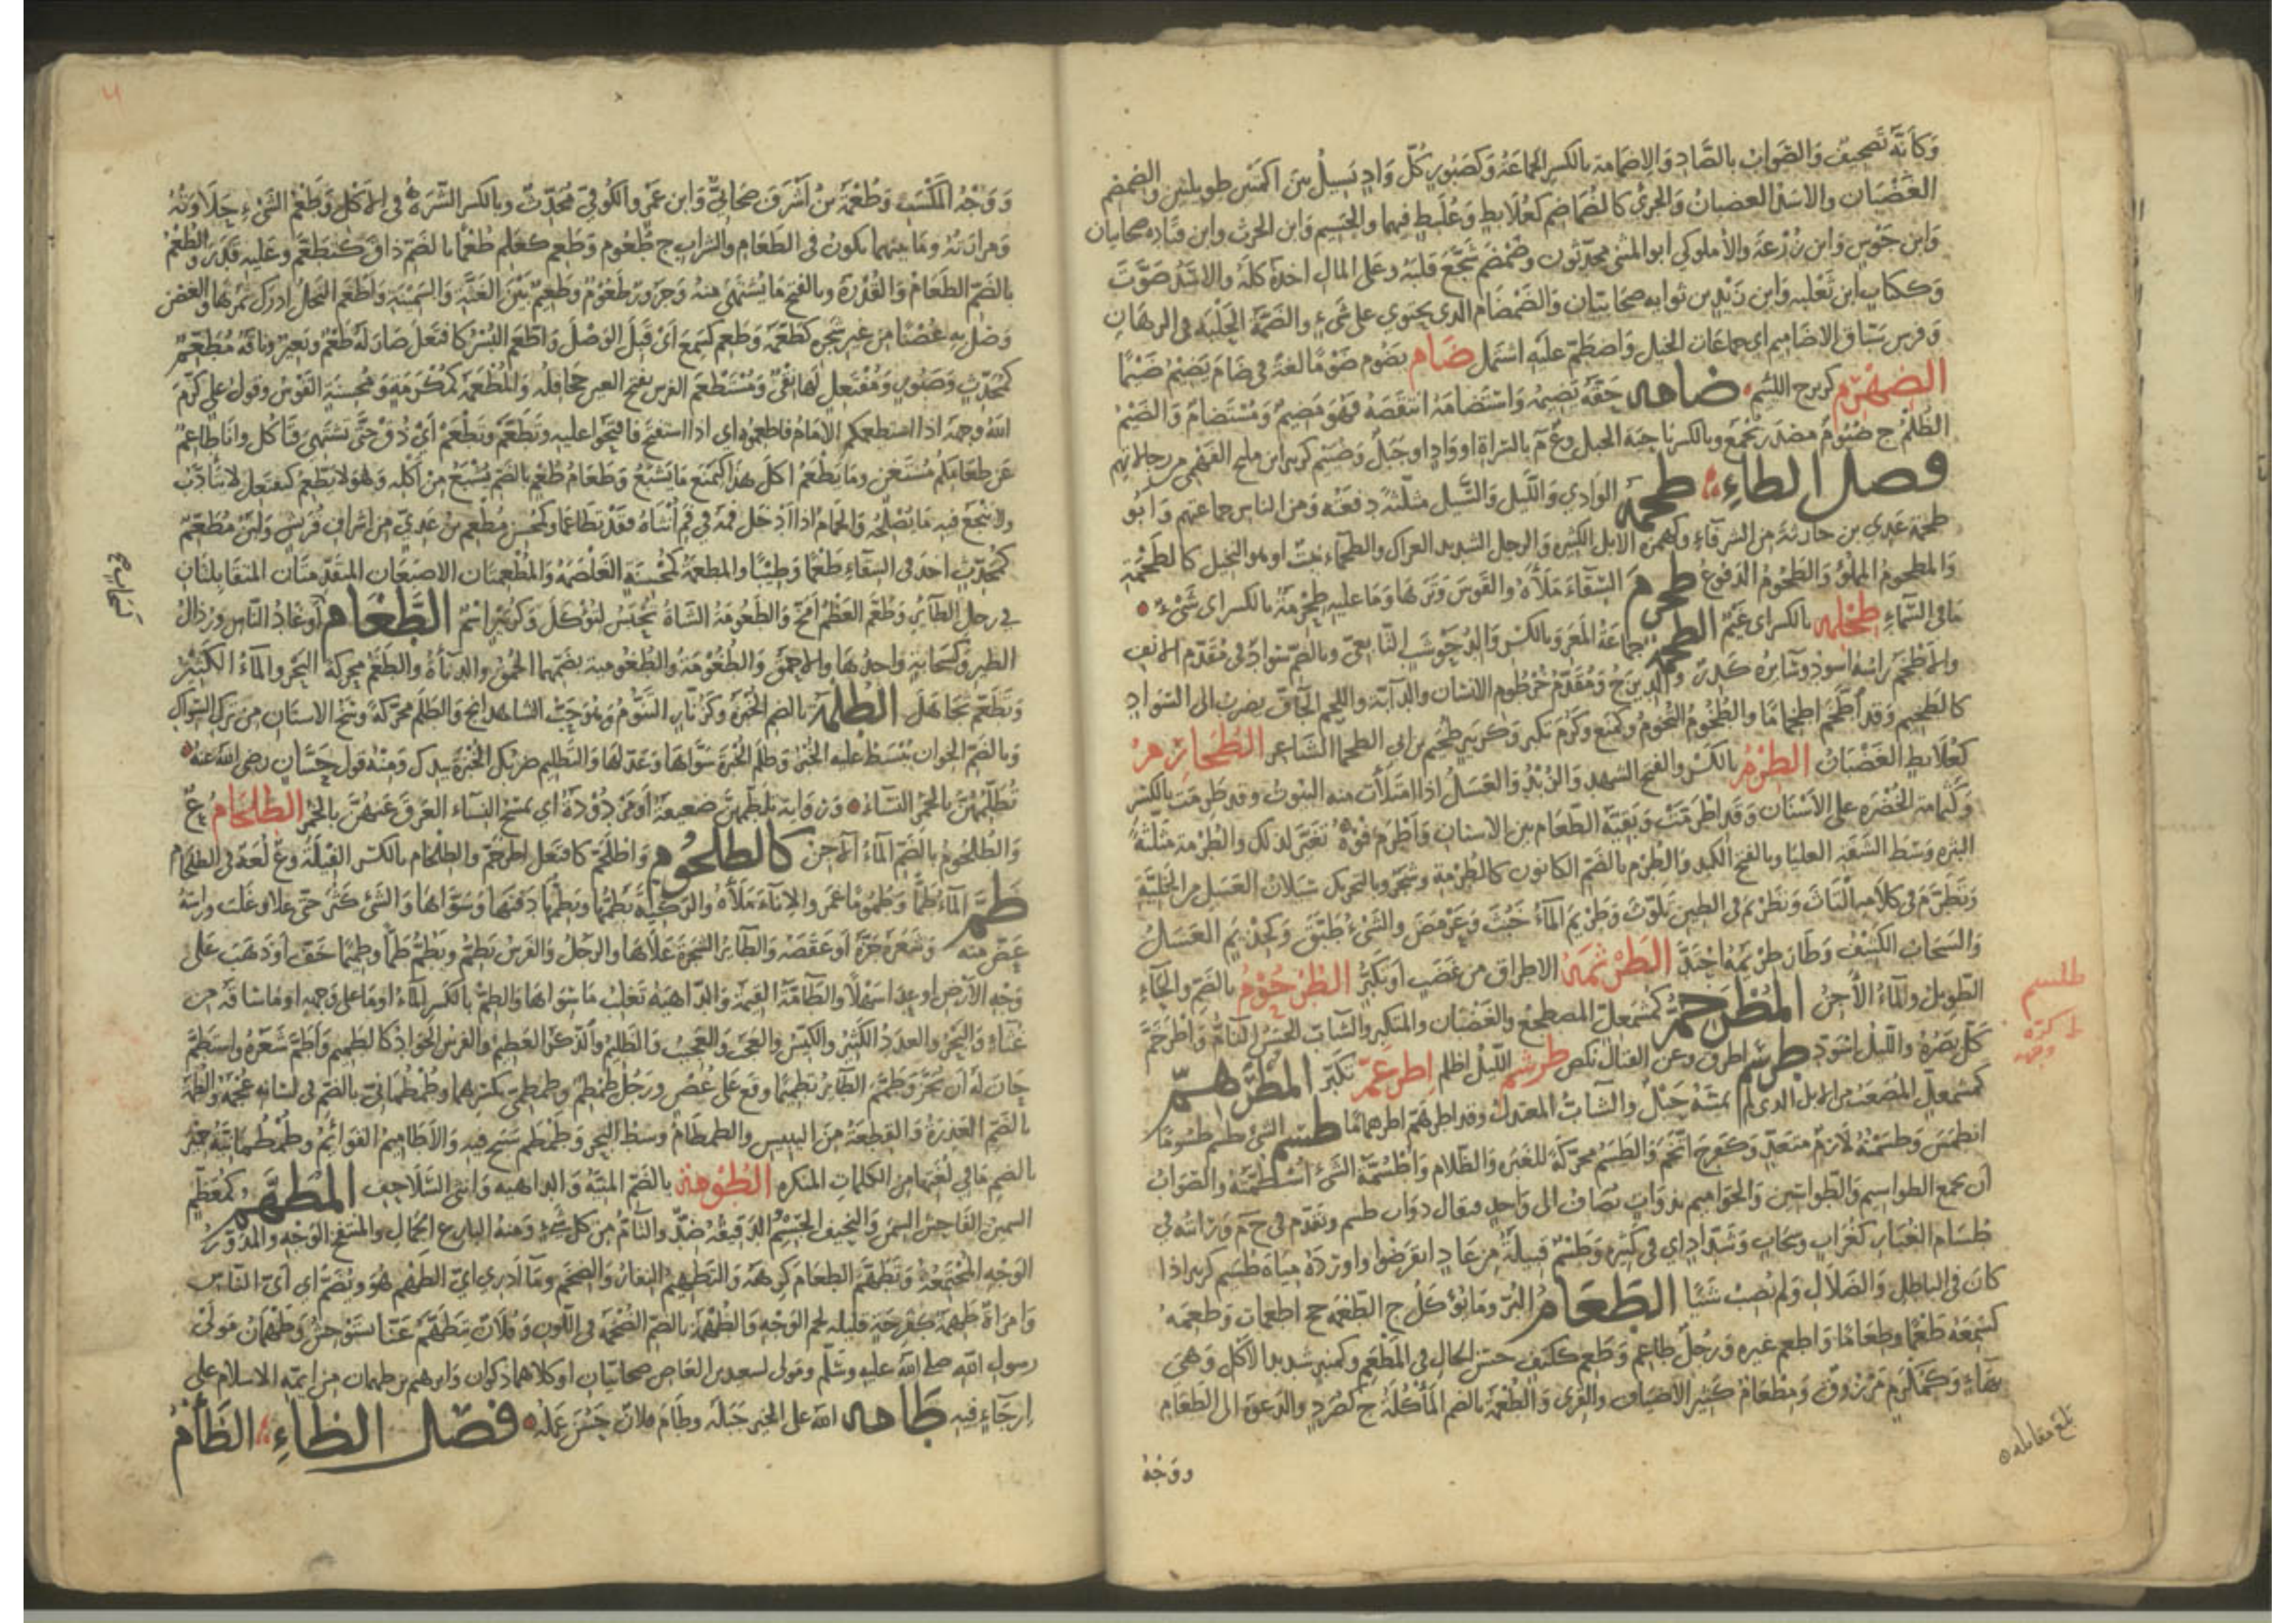 وَكأَنّه تَصحيفٌ وَالصَّوَابُ بالصَّادِ وَالاِضمَامة بالكسر الجماعَةُ وَكصَبُورٍ كُلُّ وَادٍ يَسِيلُ بينَ اكمتَين طويلتين والضمضم
الغَضْبَان والاسَد الغضبانُ وَالجرئُ كالضُمَاضِمِ كعُلابِطٍ وَعُلَبِطٍ فيهما والجَسِيم وَابن الحرث وابن قتاده صحابيان
وَابن جَوْسٍ وَابن زُرْعَة والأملوكى ابو المثنى محدّثون وضَمْضَمَ شجَّعَ قلبَهُ وعلى المالِ اخذهُ كلَّهُ والاسَدُ صَوَّتَ
وَككتابٍ ابن ثعْلبه وَابن زَيْد بن ثوابه صحابيّان وَالضَمْضَام الذى يحتوى على كلّ شىءٍ والضَمَّةُ الحَلْبه فى الرهَانِ
وَفرس سَبّاق الاضاميم اى جماعَات الخيل وَاضطَمّ علَيهِ اشتمل ضَام يضُوم ضَوْمًا لغة فى ضَامَ يَضِيْمُ ضَيْمًا
الضِهْزِم كزبرج اللئيم ضامه حَقّهُ يَضِيمُهُ وَاسْتَضَامَهُ انتقَصَهُ فهُوَ مَضِيمٌ وَمُسْتَضَامٌ وَالضَيْمُ
الظُلْمُ ج ضُيُومٌ مصْدَر يُجمَع وبالكسرِ نَاحِيَة الجبل وع م بالسَّراةِ او وَادٍ او جَبَلٌ وَضُيَيْم كزبير ابن مليح الفَهْمى من رجالاتهم
فصل الطاءِ طحمة الوَادي وَاللّيل وَالسَّيل مثلّثةً دفعَتُه وَمن الناس جماعتهم وَابُو
طحمَة عَدِي بن حارثةَ من الشرفآءِ وكهمزَة الابل الكثيره والرجل الشديد العراك والطحمآء نبتٌ او هو النجيل كالطَحْمَة
وَالمطحومُ المملُوّ وَالطَحُومُ الدَفوعُ طحرم السّقاءَ مَلَأَهُ والقَوسَ وَتّرهَا وَمَا عليهِ طِحْرِمَةٌ بالكسر اى شَىْءٌ
مَا فى السّماءِ طِحْلمَه بالكسر اى غَيْمٌ الطخمه جماعَةُ المعَز وَبالكسرِ وَالد جَوْشَب التّابعىّ وبالضمّ سَوادٌ فى مُقَدّمِ الانفِ
وَالأطْخم رَاسُهُ اسود وسَآئرهُ كدِرٌ وَالديزَجُ وَمُقَدَّم خُرْطُوم الانسَان والدآبّة واللحم الجَافّ يضرِبُ الى السّوادِ
كالطخيم وَقد اطْخَمَّ اطخمامًا والطُخُومُ التخُومُ وكمَنعَ وكرُمَ تكبّر وَكزبير طُخَيم بن ابى الطخماء الشَاعِر الطُخَارِمُ
كعُلَابطٍ الغَضْبَانُ الطِّرْمُ بالكَسرِ والفتح الشهد وَالزُبْدُ وَالعَسَل اذا امْتلأت منه البُيوتُ وقد طَرِمَت بالكسر
وَكثُمامة الخُضْره على الأسْنَانِ وَقد اطْرَمَتْ وَبقيّة الطّعَام بين الاسنانِ وَاطْرمَ فُوْهُ تغَيّر لذلك والطُرْمة مثلّثةً
البثره وسط الشَفَة العليَا وَبالفتح الكبِد وَالطُرْمُ بالضَمّ الكانون كالطُرْمةِ وشجَرٌ وبالتحريك سَيلان العَسَل من الخليّةِ
وَتَطرّمَ فى كلامِه التَاثَ وَتَطرْيَم فى الطينِ تلوّث وَطرْيَم المآءُ خبُثَ وَعَرْمَضَ والشّىْءُ طبّقَ وَكحِذْيَمٍ العَسَلُ
وَالسّحابُ الكثِيفُ وَطارَ طِرْيَمُهُ احتَدَّ الطَرْثَمَة الاطراق من غَضَبٍ او تكَبُّرٍ الطُرْحُوْمُ بالضَمّ والحَآءِ
الطّويل والمآءُ الآجنُ المُطرَخِمُّ كمشمعلّ المضطجعُ والغَضْبَان والمتكبّر والشّاب الحَسَن التّامُّ وَاطْرخَمَّ
كلَّ بصَرُهُ واللّيلُ اسوَدّ طرسَم اطرقَ وعن القتَال نكصَ طرشم اللّيلُ اظلم اِطرغَمّ تكبَّر المُطْرَهِمّ
كمشمعلٍّ المُصْعَبُ من الابل الذى لم يمسّهُ حَبْلٌ والشابّ المعتدل وقد اطرهَمّ اطرهمامًا طسَم الشئُ يطسِم طسُومًا
انطمَسَ وَطَسَمْتُهُ لازمٌ متعَدّ وَكفرِحَ اتخَمَ وَالطَسَمُ محرّكةً للغَبرَه وَالظّلام وَاطْسُمَّةُ الشَىْ اُسْطُمَّتُهُ والصَوابُ
ان يجمع الطواسيم وَالطّواسِين وَالحَوامِيم بذوَاتٍ تُضافُ الى واحدٍ فيقال ذوات طسم وتقدّم فى ح م م وَرَاسُهُ فى
طُسَام الغُبَار كغُرَابٍ وسَحَابٍ وَشَدّادٍ اى فى كثِيره وَطسْمٌ قبيلَةٌ من عَادٍ انقرَضُوا واورَدَهُ مِيَاه طُسَيم كزبير اذا
كان فى البَاطلِ وَالضَلالِ وَلم يُصِبْ شَيْئًا الطَّعَام البُرّ وَمَا يُؤكَلُ ج اطعِمَه جج اطعمَات وَطعِمَهُ
كسَمِعَهُ طَعْمًا وطَعَامًا وَاطعم غيره وَرجُلٌ طَاعم وَطَعِم ككتِفٍ حسَن الحال فى المَطْعَم وكمنبر شديد الاكل وَهى
بهَاءٍ وَكمُكْرَم مَرْزُوقٌ وَمِطْعَامٌ كثير الاضيَاف والقِرَى وَالطُعْمَة بالضم المأكُلَة ج كصُرَدٍ والدَعوَة الى الطَعَامِ
طلسم
بلغ مقابلة
ووَجْهُ
وَوَجْهُ المَكْسَبِ وَطُعْمَةُ بنُ أشْرَف صَحَابىٌّ وَابن عَمْرو الكُوفىّ مُحَدّثٌ وبالكسر السّيرَةُ فى الاكل وَطَعْمُ الشَىْءِ حَلَاوَتُهُ
وَمرَارَتُهُ ومَا بينَهما يكُونُ فى الطعَامِ والشراب ج طُعُوم وَطَعِمَ كعَلِم طُعْمًا بالضَمّ ذاقَ كتطعَّمَ وعليه قدَرَ والطُعْمُ
بالضَمّ الطَعَامُ وَالقُدْرَة وبالفتح مَا يُشتهَى منهُ وَجَزورٌ طَعُومٌ وطَعِيمٌ بيْن الغَثّةِ والسَمِينَةِ وَاطْعَم النخلُ ادرَكَ ثمرُهَا والغصْنَ
وَصَل بهِ غُصْنًا من غير شجَرِه كطَعّمَهُ وَطَعِمَ كسَمِعَ اى قَبِلَ الوَصْلَ وَاطّعَمَ البُسْرُ كافتعَل صَارَ لَهُ طَعْمٌ وَبَعيرٌ وناقَةٌ مُطَعِّمٌ
كمُحَدّثٍ وَصَبُورٍ وَمُفْتعِل لها نِقْىٌ وَمُسْتَطْعَم الفرس بفتح العين جحافِلُهُ وَالمُطْعَمَة كمُكْرَمَةٍ وَمُحْسِنَةٍ القَوْسُ وقولُ على كرّمَ
اللهُ وجهَهُ اذا استطعمكم الامَامُ فاطعِمُوه اى اذا استفتحَ فافتحُوا عليه وتَطَعَّمْ تَطْعَمْ أى ذُقْ حَتّى تَشتَهِىَ فتَأكُل وانا طاعِمٌ
عن طعَامِكم مُسْتَغنٍ وما يَطْعَمُ اكل هذَا كيَمنَع مَا يَشبَعُ وَطعَامُ طُعْمٍ بالضَمّ يُشبِعُ من أكْلهِ وَهُوَ لا يَطَّعِمُ كيفتَعِل لا يتَأدَّبُ
ولا ينْجَعُ فيه مَا يُصْلِحُهُ وَالحَمَامُ اذا ادْخل فمَهُ فى فَمِ أنثَاهُ فقَدْ تطَاعَمَا وكمُحْسِنٍ مُطْعِمُ بنُ عَدِىّ من اشرافِ قُرَيشٍ وَلَبَنٌ مُطَعِّمٌ
كمُحَدّث اخذَ فى السِّقاءِ طَعْمًا وَطِيبًا والمطعِمَة كمُحْسِنَةٍ الغَلْصَمَةُ وَالمُطْعِمتَان الاصبَعَان المتَقَدّمتَان المتقَابلتَانِ
فى رجل الطآئِرِ وَطَعّم العَظْمُ أمخَّ وَالطَعُومَةُ الشاةُ تُحْبَسُ لتُؤكَلَ وَكزُبَيرٍ اسْمٌ الطَّغَام أوْغَادُ النّاسِ ورُذَالُ
الطير وَكسَحَابةٍ واحدُهَا والاحمَقُ وَالطُغُوْمَةُ والطُغُومِية بضَمّهِما الحُمْقُ والدنَآءَةُ والطَغَمُ محركة البَحْرُ والمآءُ الكَثِيْرُ
وَتَطَغَّمَ تجَاهَلَ الطُلْمَةُ بالضم الخُبْزَة وَكزُنّارٍ التَنُّوْمُ وهُوَ حَبّ الشاهْدَانج وَالطَلَم محرّكةً وسَخُ الاسنَان من تركِ السِّواكِ
وَبالضَمّ الخِوَان يُبْسَطُ عليهِ الخُبْزُ وَطَلَمَ الخُبْزَةَ سَوَّاهَا وَعَدَّلهَا وَالتَطليم ضربُكَ الخُبْزَةَ بيدك وَمِنْهُ قول حَسَّانٍ رضى اللهُ عنه
تُطَلّمُهُنَّ بالخُمُرِ النّسَاءُ وَرِوَايَة يُلَطّمُهُنَّ ضعيفَةٌ او مَرْدُوْدَةٌ اى يمسَحُ النّسَاءُ العَرَقَ عَنهُنَّ بالخُمُر الطِّلخام ع
وَالطُلْحُومُ بالضَمّ المآءُ الآجنُ كالطُلْخُوم وَاطْلَخَمَّ كافعَللّ اطرخَمّ والطِلْخَام بالكسر الفِيلَةُ وع لُغَة فى الطِلحَامِ
طَمَّ المآءُ طَمًّا وَطُمُومًا غمَرَ والاناءَ مَلَأهُ والرَّكِيَّةَ يَطُمُّهَا ويَطِمُّهَا دَفنَهَا وَسَوّاهَا وَالشَىْ كثُرَ حتّى علَا وغَلَبَ وراسَهُ
عَضّ منه وَشعرَهُ جَزَّهُ أوعَقَصَهُ وَالطآئِرُ الشجَرَةَ عَلاهَا والرجُلُ وَالفَرَسُ يَطِمُّ ويَطُمُّ طَمًّا وطَمِيْمًا خَفَّ أوذَهَبَ عَلى
وَجْهِ الأرضِ او عَدَا سَهْلًا والطَّآمَّةُ القيمَةُ وَالدّاهِيَةُ تَغلِبُ مَا سوَاهَا والطِمُّ بالكَسرِ المَآءُ اوما على وَجههِ او مَا سَاقَهُ من
غثاءٍ وَالبَحْرُ والعدَدُ الكثيرُ والكَيّسُ والعَجَبُ والعَجِيبُ وَالظليمُ والذكَرُ العَظِيمُ والفرسُ الجَوَادُ كالطَمِيم وَأطَمَّ شَعرُهُ واستَطمَّ
حَانَ لَهُ أن يُجَزَّ وَطَمَّمَ الطَآئِرُ تَطمِيمًا وَقعَ على غُصْنٍ وَرَجُل طِمْطِم وَطِمطِمِىّ بكسرِهِمَا وَطُمطُمانىّ بالضَمّ فى لسَانِهِ عُجْمَةٌ وَالطُّمَّةُ
بالضَمّ العَذِرَةُ وَالقِطعَةُ منَ اليبِيسِ والطمطَامُ وَسَطُ البَحْرِ وَطَمْطَمَ سَبَحَ فيه وَالأطَامِيمُ القوَائِمُ وطُمْطُمانِيَّةُ حِمْيَر
بالضَمِ مَا فى لُغَتِهَا منَ الكلِمَاتِ المنكرَه الطُوْمَة بالضَمّ المنِيّةُ وَالداهيه وَانثى السَّلَاحِفِ المُطَهَّم كمُعَظَّمٍ
السمينُ الفَاحِشُ السِمَنِ وَالنحِيفُ الجِسْمِ الدَقيقُهُ ضدٌّ والتآمُّ من كل شىْءٍ ومنهُ البَارعُ الجمَالِ والمنتفخ الوَجْهِ والمدَوَّرُ
الوَجْهِ المُجْتَمِعُهُ وَتَطَهَّمَ الطعَامَ كرِهَهُ وَالتَطهِيمُ النِّفَارُ وَالضِخَمُ ومَآ أدرِى اىُّ الطَهْم هُوَ ويُضَمُّ اى اىّ النّاسِ
وَامرَأةٌ طَهِمَةٌ كفَرِحَةٍ قليله لحم الوَجْهِ وَالطُهْمَة بالضَمّ الصُحْمَه فى اللّونِ وَفُلَانٌ يتَطَهَّمُ عَنّا يَستَوحِشُ وَطَهْمَانُ مَولى
رسول الله صلى الله عليه وسَلّم ومَولى لسعيد بن العَاص صحابيّانِ او كلاهُمَا ذكوان وابرهيم بن طهمان من ايمّة الاسلام على
إرجآءٍ فيه طَامه الله على الخير جَبَلَهُ وطَامَ فلَانٌ حَسُنَ عَمَلُهُ فصل الظاءِ الظَأْمُ